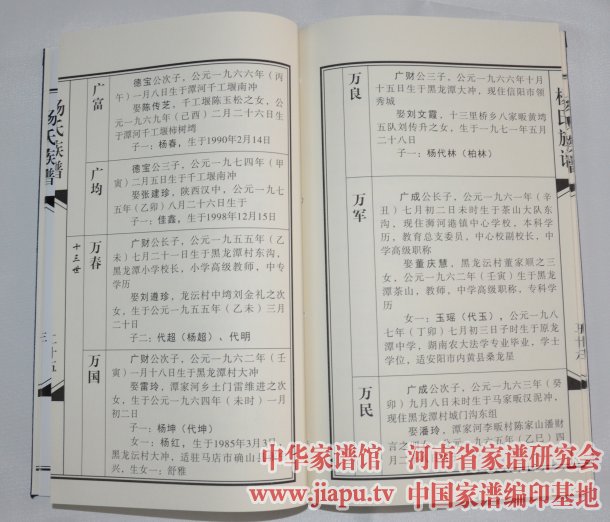 杨氏族谱
广富
德宝公次子，公元一九六六年（丙
午）一月八日生于潭河千工堰南冲
娶陈传芝，千工堰陈玉松之女，公
元一九六九年（己酉）二月二十六日生
于潭河千工堰柿树塆
子一：杨春，生于1990年2月14日
广均
德宝公三子，公元一九七四年（甲
寅）二月五日生于千工堰南冲
娶张建珍，陕西汉中，公元一九七
五年（乙卯）八月二十六日生于
子一：佳鑫，生于1998年12月15日
十三世
万春
广财公长子，公元一九五五年（乙
未）七月二十一日生于黑龙潭村东沟，
黑龙潭小学校长，小学高级教师，中专
学历
娶刘遵珍，龙沄村中塆刘金礼之次
女，生于公元一九五五年（乙未）三月
二十日
子二：代超（杨超）、代明
万国
广财公次子，公元一九六二年（壬
寅）一月十八日生于黑龙潭大冲
娶雷玲，谭家河乡土门雷维进之次
女，生于公元一九六四年（未时）一月
初二日
子一：杨坤（代坤）
女一：杨红，生于1985年3月3日
黑龙沄村大冲，适驻马店市确山县
兴，生女一：舒雅
二十五
杨氏族谱
万良
广财公三子，公元一九六六年十月
十五日生于黑龙潭大冲，现住信阳市领
秀城
娶刘文霞，十三里桥乡八家畈黄塆
五队刘传升之女，生于一九七一年五月
二十八日
子一：杨代林（柏林）
万军
广成公长子，公元一九六一年（辛
丑）七月初二日未时生于茶山大队东
沟，现住浉河港镇中心学校，本科学
历，教育总支委员，中心校副校长，中
学高级职称
娶董庆慧，黑龙沄村董家顺之三
女，公元一九六二年（壬寅）生于黑龙
潭茶山，教师，中学高级职称，专科学
历
女一：玉瑶（代玉），公元一九八
七年（丁卯）七月初三日子时生于原龙
潭中学，湖南农大法学专业毕业，学士
学位，适安阳市内黄县桑龙星
万民
广成公次子，公元一九六三年（癸
卯）九月八日未时生于马家畈汉泥冲，
现住黑龙潭村城门沟东组
娶潘玲，谭家河李畈村陈家山潘财
言之女，公元一九六五年（乙巳）四
月二
中华家谱馆 河南省家谱研究会
www.jiapu.tv 中国家谱编印基地